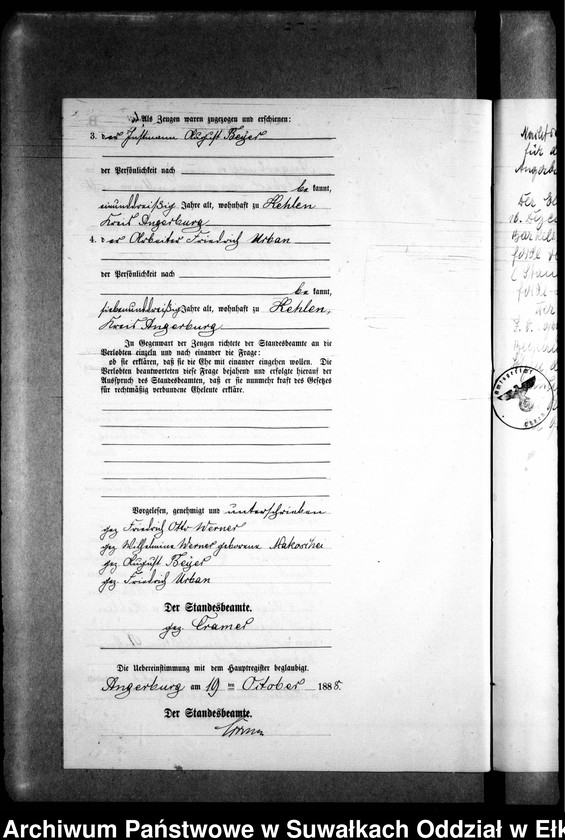 Als Zeugen waren zugezogen und erschienen:
3. der Instmann August Beyer
der Persönlichkeit nach
be kannt,
einunddreißig Jahre alt, wohnhaft zu Kehlen
Kreis Angerburg
4. der Arbeiter Friedrich Urban
der Persönlichkeit nach
be kannt,
siebenunddreißig Jahre alt, wohnhaft zu Kehlen,
Kreis Angerburg
In Gegenwart der Zeugen richtete der Standesbeamte an die
Verlobten einzeln und nach einander die Frage:
ob sie erklären, daß sie die Ehe mit einander eingehen wollen. Die
Verlobten beantworteten diese Frage bejahend und erfolgte hierauf der
Ausspruch des Standesbeamten, daß er sie nunmehr kraft des Gesetzes
für rechtmäßig verbundene Eheleute erkläre.
Vorgelesen, genehmigt und unterschrieben
gez Friedrich Otto Werner
gez Wilhelmine Werner geborene
gez August Beyer
gez. Friedrich Urban
Der Standesbeamte.
gez. Cramer
Die Uebereinstimmung mit dem Hauptregister beglaubigt.
Angerburg am 19 ten October 1885.
Der Standesbeamte.
für
Der
Archiwum Państwowe w Suwałkach Oddział w Ełk